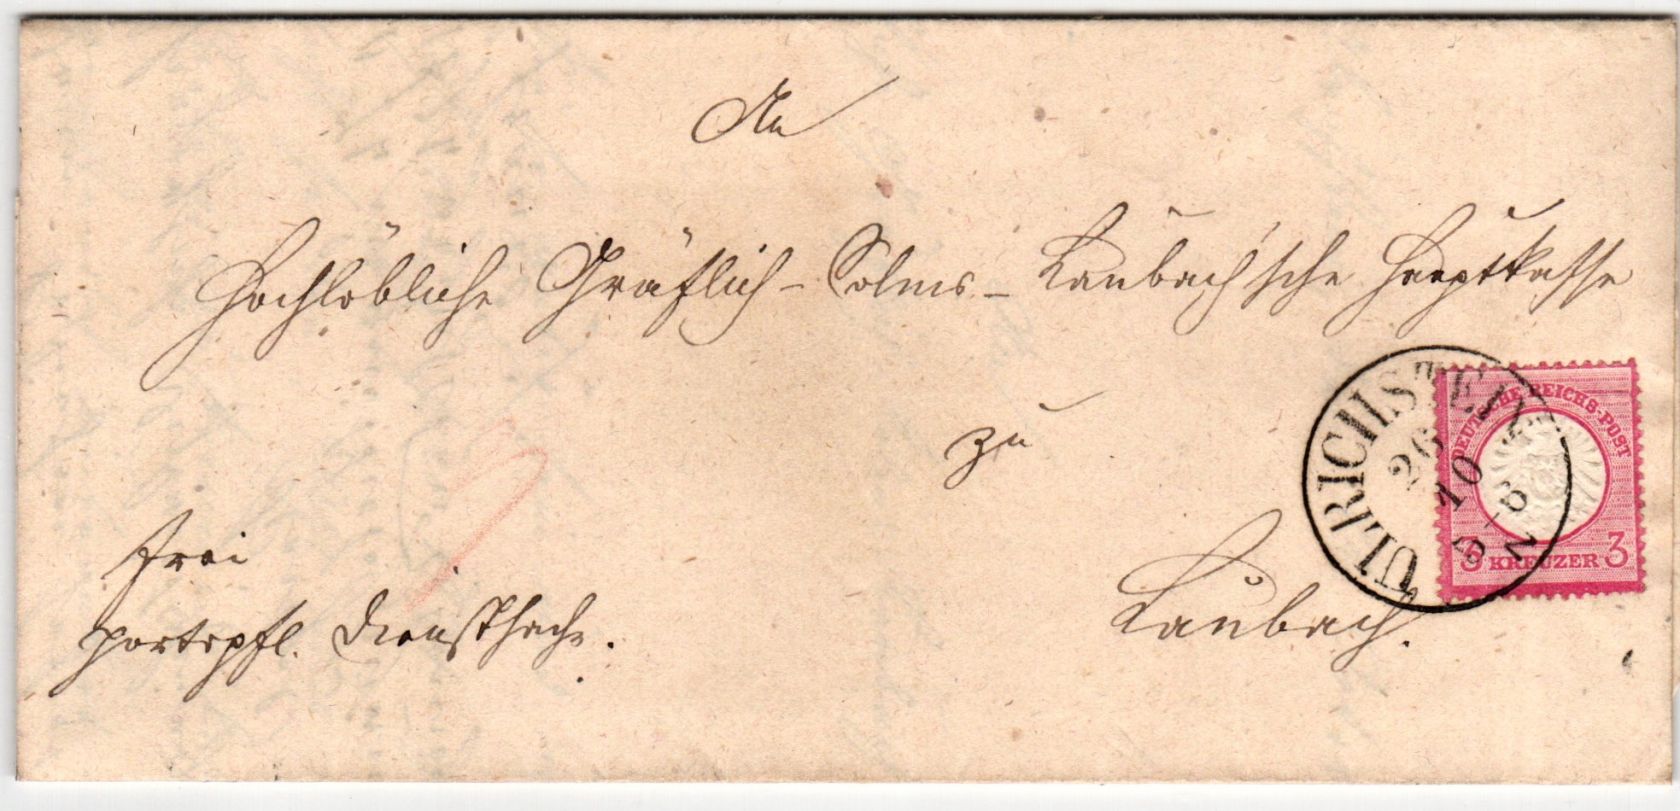 An
Hochlöbliche Gräflich-Solms-Laubach'sche Hauptkasse
zu
Laubach.
frei
portopfl. Dienstsache.
ULRICHSTEIN
26
10
5-6
N
DEUTSCHE REICHS-POST
3 KREUZER 3